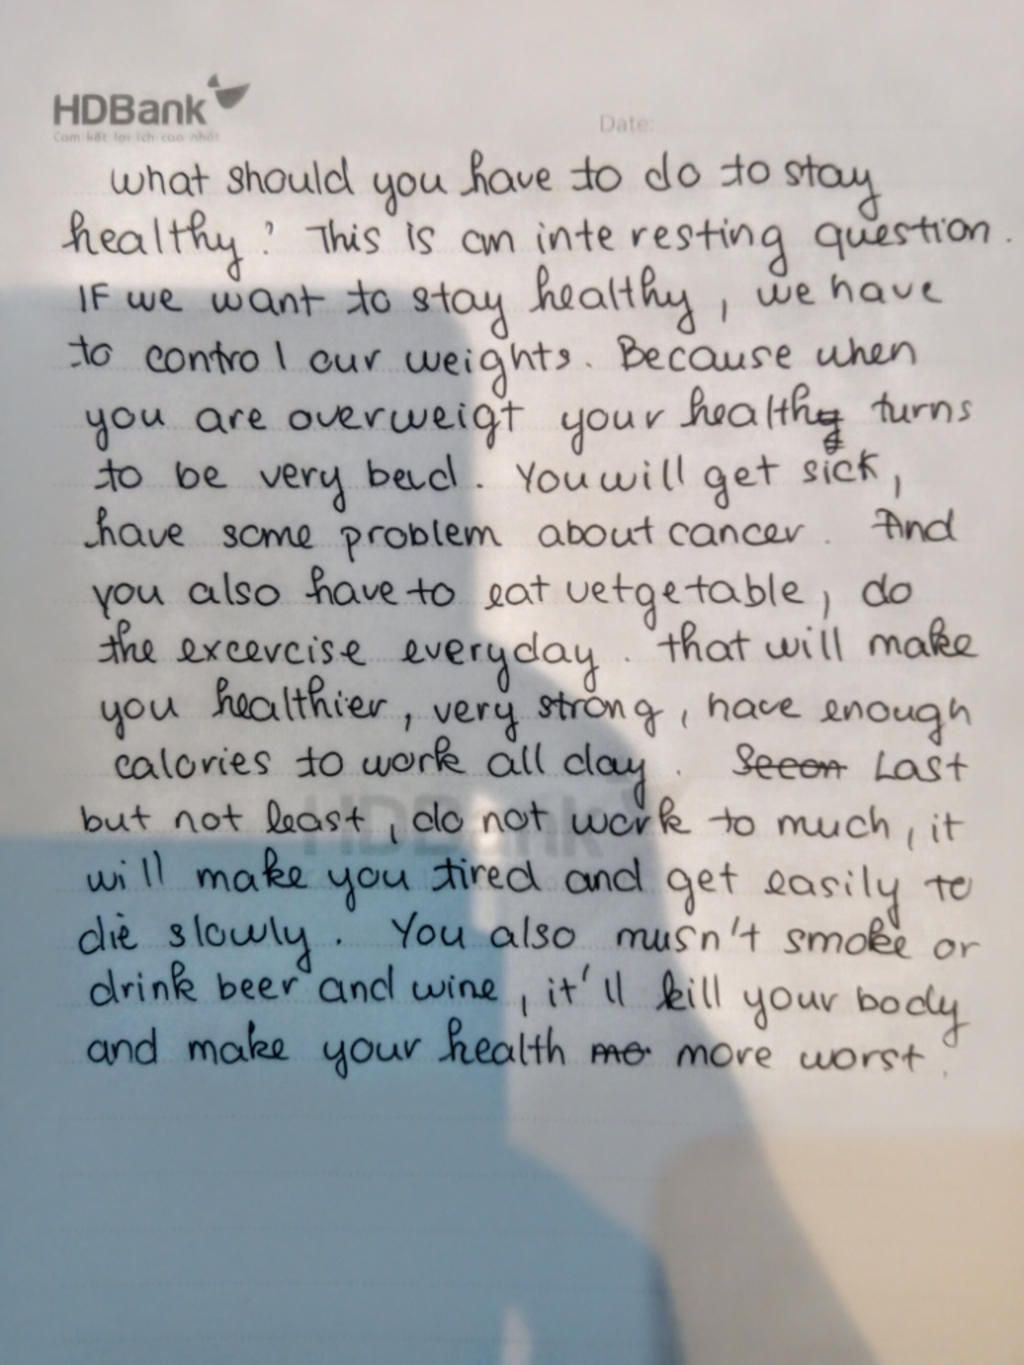 HDBank
Cam kết lợi ích cao nhất
Date:
what should you have to do to stay
healthy? This is an interesting question.
IF we want to stay healthy, we have
to control our weights. Because when
you are overweigt your health turns
to be very bad. You will get sick,
have some problem about cancer. And
you also have to eat vetgetable, do
the excercise everyday. that will make
you healthier, very strong, have enough
calories to work all day. Secon Last
but not least, do not work to much, it
will make you tired and get easily to
die slowly. You also musn't smoke or
drink beer and wine, it'll kill your body
and make your health mo more worst.
HDBank